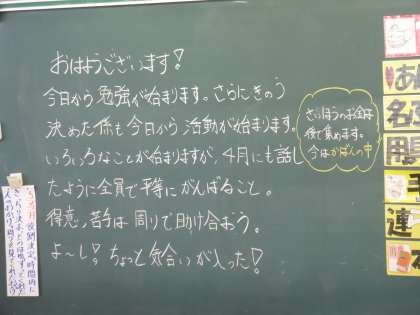 おはようございます!
今日から勉強が始まります。さらにきのう
決めた係も今日から活動が始まります。
いろいろなことが始まりますが、4月にも話し
たように全員で平等にがんばること。
得意、苦手は周りで助け合おう。
よ〜し!ちょっと気合いが入った!
さいほうのお金は
後で集めます。
今はかばんの中
名
用
手
連